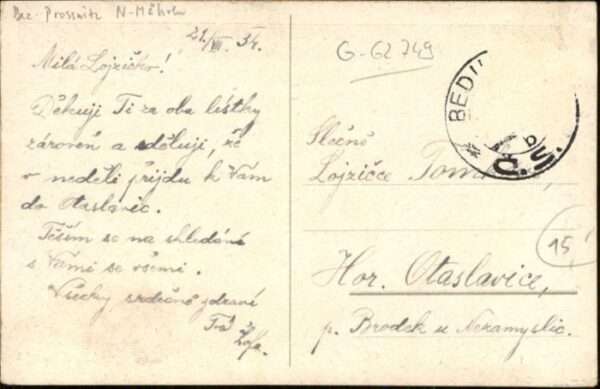 Bez. Prossnitz N-Mähren
21./VII. 34.
Milá Lojzičko!
Děkuji Ti za oba lístky
zároveň a sděluji, že
v neděli přijdu k Vám
do Otaslavic.
Těším se na shledání
s Vámi se všemi.
Všechny srdečně zdraví
Tvá
Žofa.
G-62749
* BEDI
b
Č.S.
Slečně
Lojzičce Tom
15
Hor. Otaslavice,
p. Brodek u Nezamyslic.